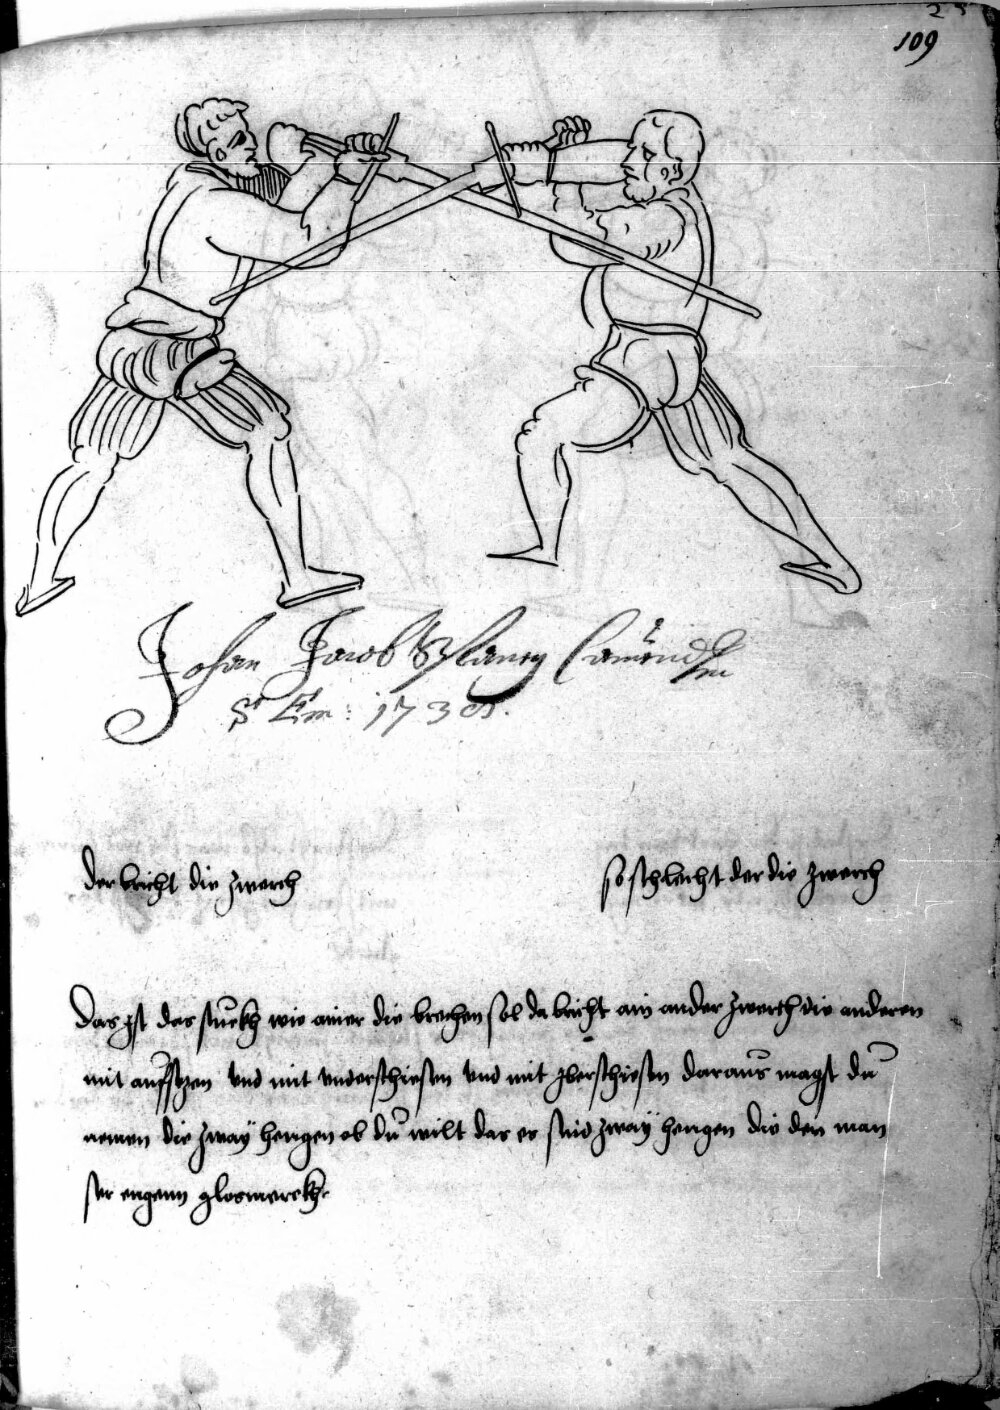 25
109
Johan Jacob
St Em: 173
der bricht die zwerch
so schlecht der die zwerch
Das yst das stuckh wie ainer die brechen sol da bricht ain ander zwerch die anderen
mit auffsyzen vnd mit vnderschiessen vnd mit yberschiessen daraus magst du
nemen die zway hengen ob du wilt das es sind zway hengen die den man
ser engenn glosmerckh